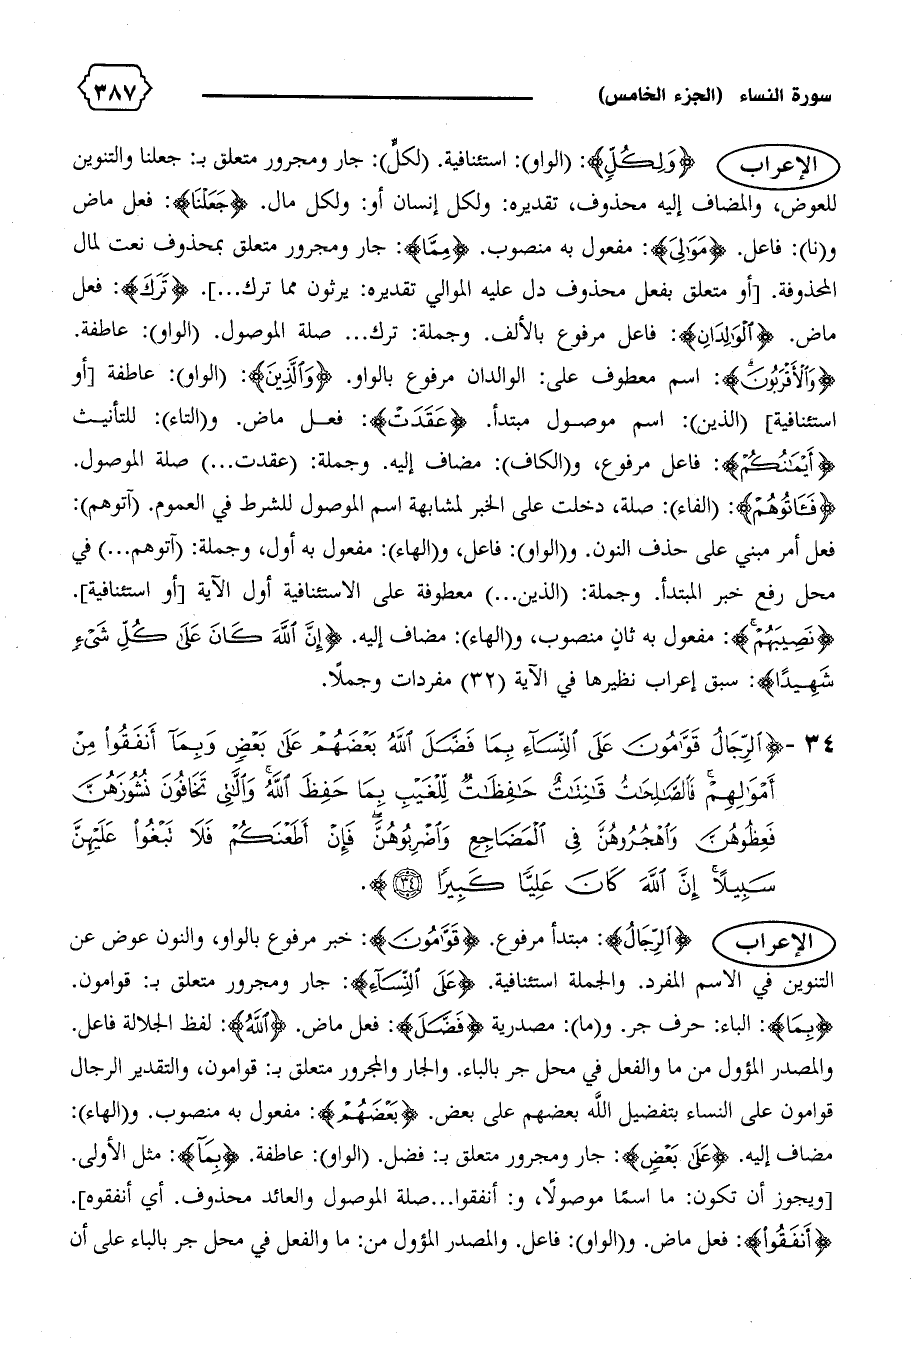 سورة النساء (الجزء الخامس) ٣٨٧
الإعراب ﴿وَلِكُلٍّ﴾: (الواو): استئنافية. (لكلٍّ): جار ومجرور متعلق بـ: جعلنا والتنوين
للعوض، والمضاف إليه محذوف، تقديره: ولكل إنسان أو: ولكل مال. ﴿جَعَلْنَا﴾: فعل ماض
و(نا): فاعل. ﴿مَوَالِيَ﴾: مفعول به منصوب. ﴿مِمَّا﴾: جار ومجرور متعلق بمحذوف نعت لمال
المحذوفة. [أو متعلق بفعل محذوف دل عليه الموالي تقديره: يرثون مما ترك...]. ﴿تَرَكَ﴾: فعل
ماض. ﴿ٱلْوَٰلِدَانِ﴾: فاعل مرفوع بالألف. وجملة: ترك... صلة الموصول. (الواو): عاطفة.
﴿وَٱلْأَقْرَبُونَۚ﴾: اسم معطوف على: الوالدان مرفوع بالواو. ﴿وَٱلَّذِينَ﴾: (الواو): عاطفة [أو
استئنافية] (الذين): اسم موصول مبتدأ. ﴿عَقَدَتْ﴾: فعل ماض. و(التاء): للتأنيث
﴿أَيْمَٰنُكُمْ﴾: فاعل مرفوع، و(الكاف): مضاف إليه. وجملة: (عقدت...) صلة الموصول.
﴿فَـَٔاتُوهُمْ﴾: (الفاء): صلة، دخلت على الخبر لمشابهة اسم الموصول للشرط في العموم. (آتوهم):
فعل أمر مبني على حذف النون. و(الواو): فاعل، و(الهاء): مفعول به أول، وجملة: (آتوهم...) في
محل رفع خبر المبتدأ. وجملة: (الذين...) معطوفة على الاستئنافية أول الآية [أو استئنافية].
﴿نَصِيبَهُمْۚ﴾: مفعول به ثانٍ منصوب، و(الهاء): مضاف إليه. ﴿إِنَّ ٱللَّهَ كَانَ عَلَىٰ كُلِّ شَىْءٍ
شَهِيدًا﴾: سبق إعراب نظيرها في الآية (٣٢) مفردات وجملًا.
٣٤ - ﴿ٱلرِّجَالُ قَوَّٰمُونَ عَلَى ٱلنِّسَآءِ بِمَا فَضَّلَ ٱللَّهُ بَعْضَهُمْ عَلَىٰ بَعْضٍ وَبِمَآ أَنفَقُوا۟ مِنْ
أَمْوَٰلِهِمْۚ فَٱلصَّٰلِحَٰتُ قَٰنِتَٰتٌ حَٰفِظَٰتٌ لِّلْغَيْبِ بِمَا حَفِظَ ٱللَّهُۚ وَٱلَّٰتِى تَخَافُونَ نُشُوزَهُنَّ
فَعِظُوهُنَّ وَٱهْجُرُوهُنَّ فِى ٱلْمَضَاجِعِ وَٱضْرِبُوهُنَّۖ فَإِنْ أَطَعْنَكُمْ فَلَا تَبْغُوا۟ عَلَيْهِنَّ
سَبِيلًاۗ إِنَّ ٱللَّهَ كَانَ عَلِيًّا كَبِيرًا ٣٤﴾.
الإعراب ﴿ٱلرِّجَالُ﴾: مبتدأ مرفوع. ﴿قَوَّٰمُونَ﴾: خبر مرفوع بالواو، والنون عوض عن
التنوين في الاسم المفرد. والجملة استئنافية. ﴿عَلَى ٱلنِّسَآءِ﴾: جار ومجرور متعلق بـ: قوامون.
﴿بِمَا﴾: الباء: حرف جر. و(ما): مصدرية ﴿فَضَّلَ﴾: فعل ماض. ﴿ٱللَّهُ﴾: لفظ الجلالة فاعل.
والمصدر المؤول من ما والفعل في محل جر بالباء. والجار والمجرور متعلق بـ: قوامون، والتقدير الرجال
قوامون على النساء بتفضيل اللَّه بعضهم على بعض. ﴿بَعْضَهُمْ﴾: مفعول به منصوب. و(الهاء):
مضاف إليه. ﴿عَلَىٰ بَعْضٍ﴾: جار ومجرور متعلق بـ: فضل. (الواو): عاطفة. ﴿بِمَآ﴾: مثل الأولى.
[ويجوز أن تكون: ما اسمًا موصولًا، و: أنفقوا...صلة الموصول والعائد محذوف. أي أنفقوه].
﴿أَنفَقُوا۟﴾: فعل ماض. و(الواو): فاعل. والمصدر المؤول من: ما والفعل في محل جر بالباء على أن